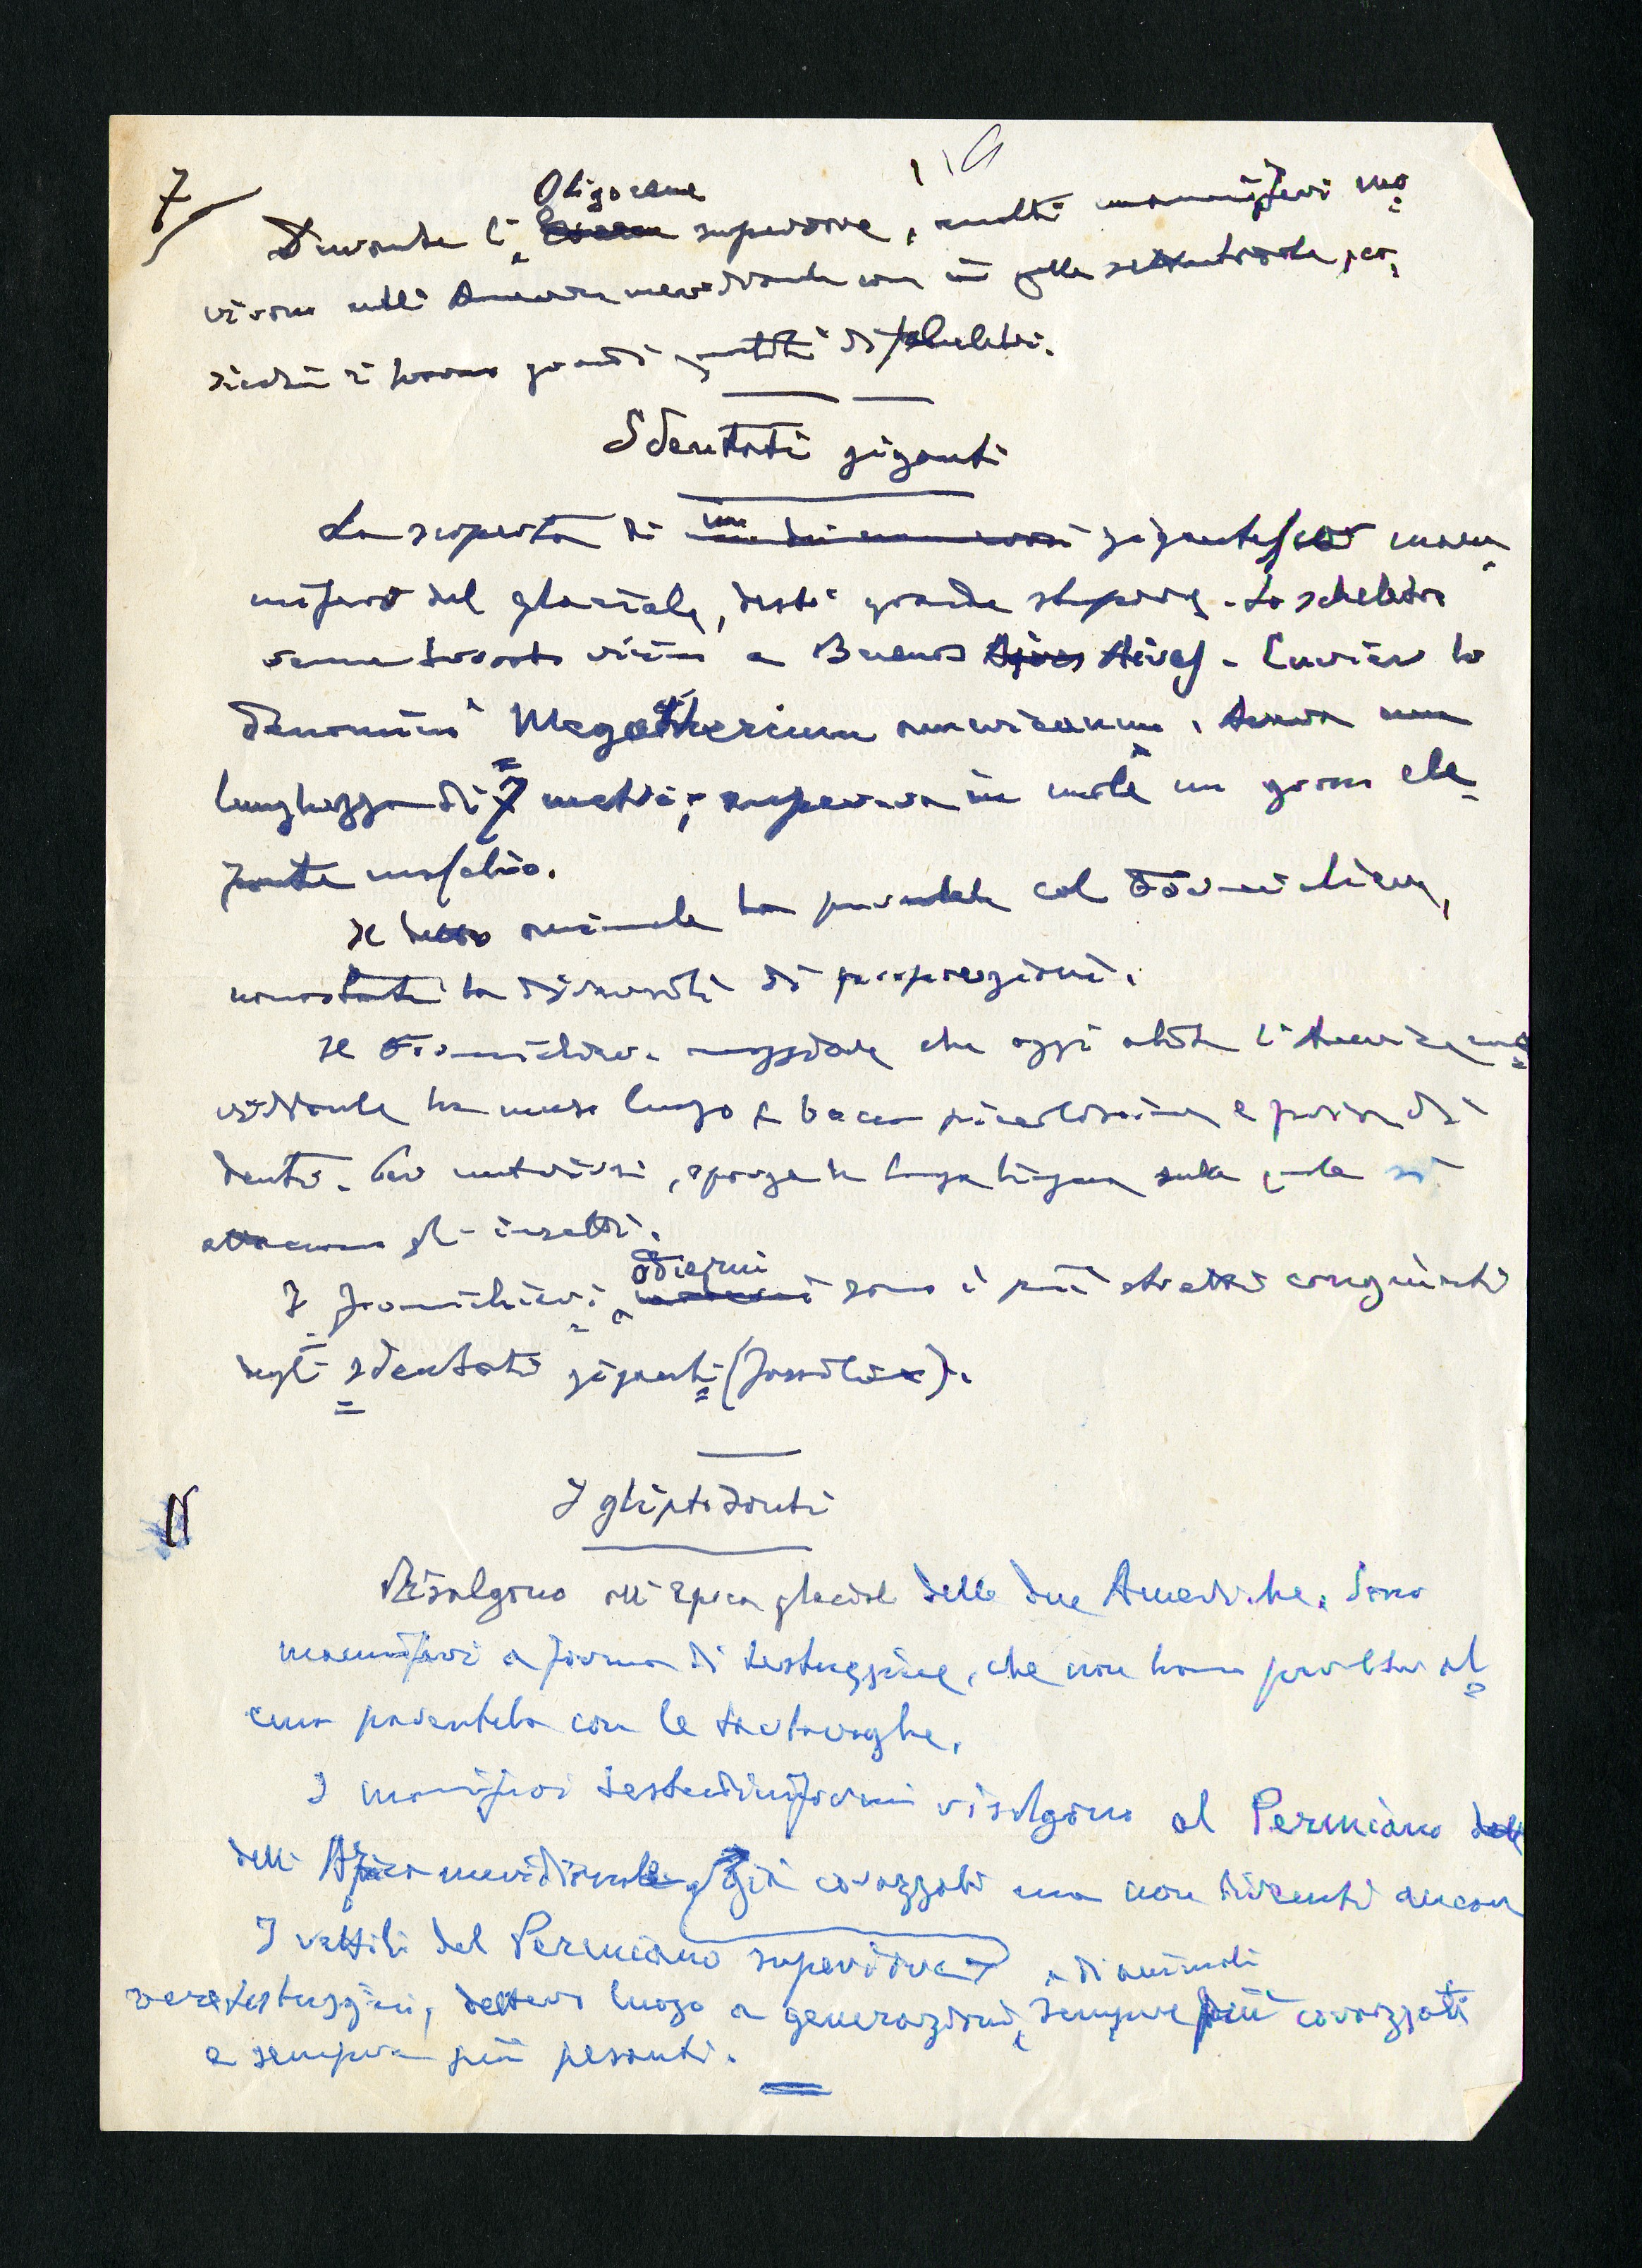 7
Oligocene
Durante l' Eocene superiore, molti mammiferi mo=
rirono nell'America meridionale come in quella settentrionale,
si trovano grandi quantità di scheletri.
Sdentati giganti
La scoperta di un gigantesco mam=
mifero del glaciale, destò grande stupore. Lo scheletro
venne trovato vicino a Buenos Ajres Aires. Cuvier lo
denominò Megatherium americanum. Aveva una
lunghezza di 7 metri; superava in mole un grosso ele=
fante maschio.
Il detto animale ha parentele col Formichiere,
nonostante la diversità di proporzioni.
Il Formichiere maggiore che oggi abita l'America me=
ridionale ha muso lungo e bocca piccolissima e priva di
denti. Per nutrirsi, sporge la lunga lingua sulla quale si
attaccano gl'insetti.
odierni
I formichieri moderni sono i più stretti congiunti
degli sdentati giganti (fossili).
N
I gliptodonti
Risalgono all'Epoca glaciale delle due Americhe. Sono
mammiferi a forma di testuggine, che non hanno peraltro al=
cuna parentela con le tartarughe.
I mammiferi testudiniformi risalgono al Permiano dell
dell'Africa meridionale, già corazzati ma non divenuti ancora
I rettili del Permiano superiore
, di animali
vere testuggini, dettero luogo a generazioni, sempre più corazzati
e sempre più pesanti.